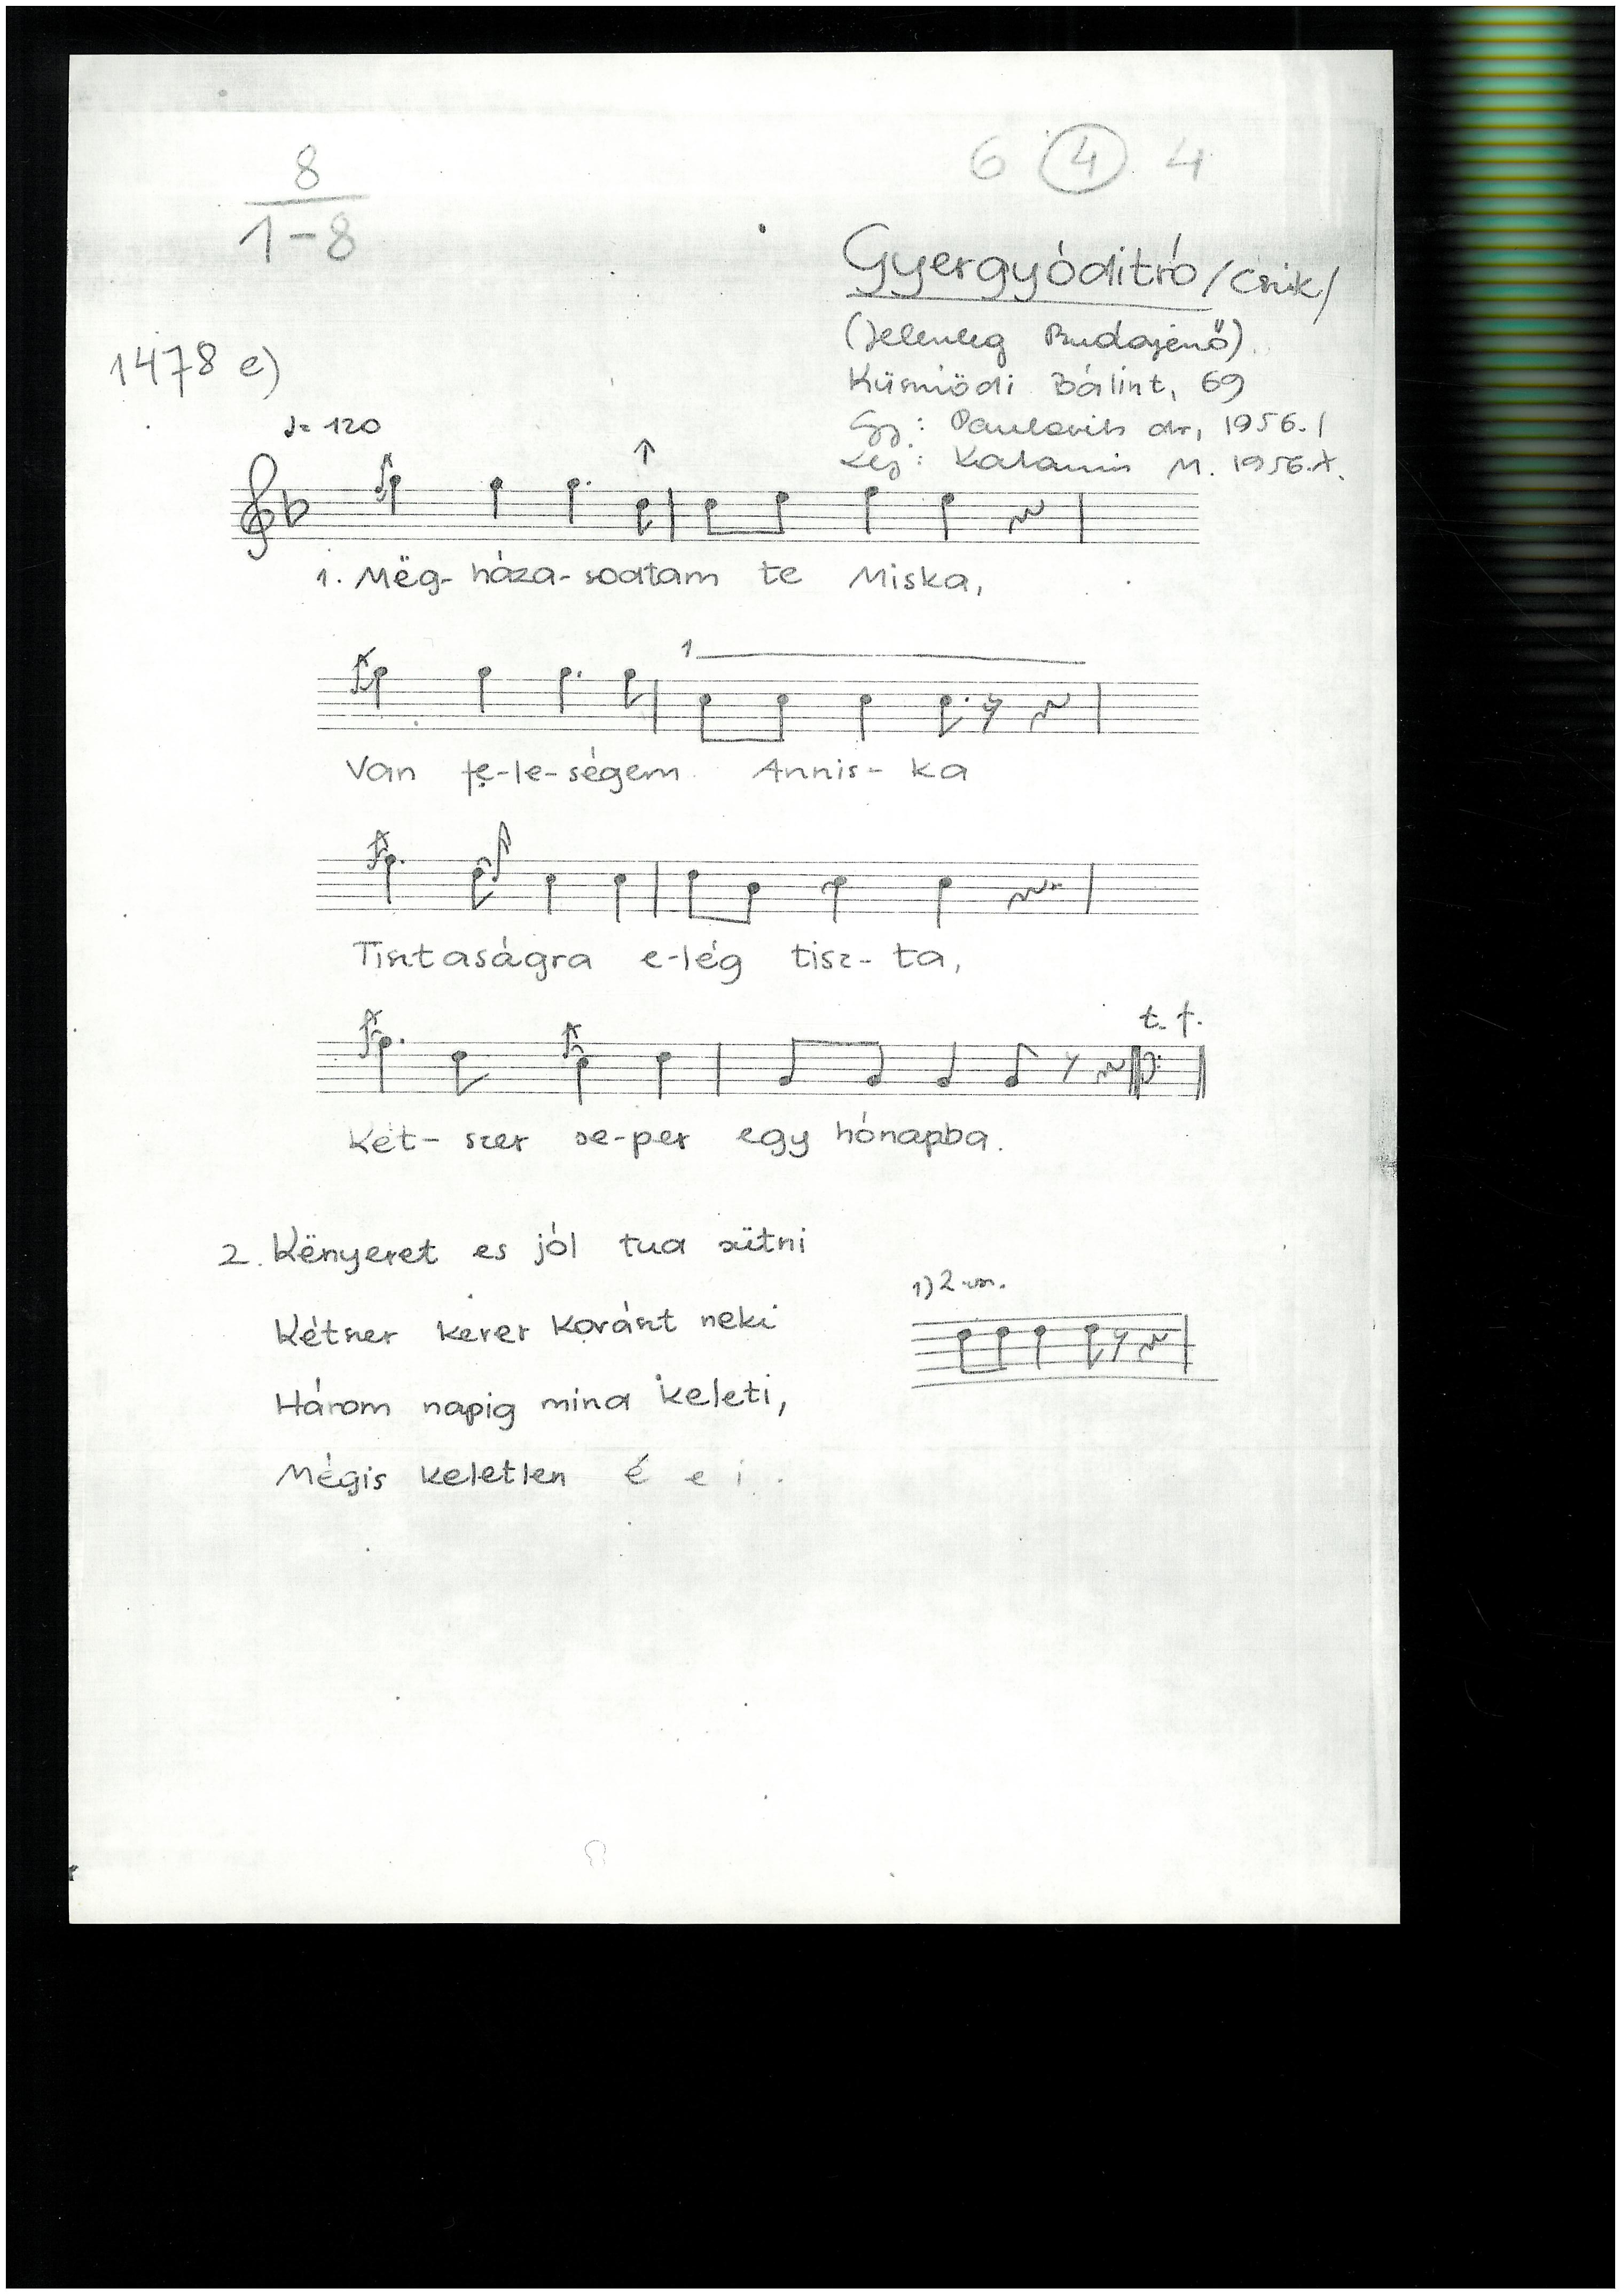 8
1-8
6 4 4
Gyergyóditró /Csík/
(Jelenleg Budajenő)
Küsmödi Bálint, 69
1478 e)
Gy: Paulovits 1956. I
♩= 120
Lej: M. 1956. X.
1. Mëg- háza- sodtam te Miska,
1
Van fe-le-ségem Annis- ka
Tisztaságra e-lég tisz- ta,
t. f.
Két- szer se-per egy hónapba.
2. Kënyeret es jól tud sütni
1) 2 vsz.
Kétszer kerer kovászt neki
Három napig mind keleti,
Mégis keletlen é e i.